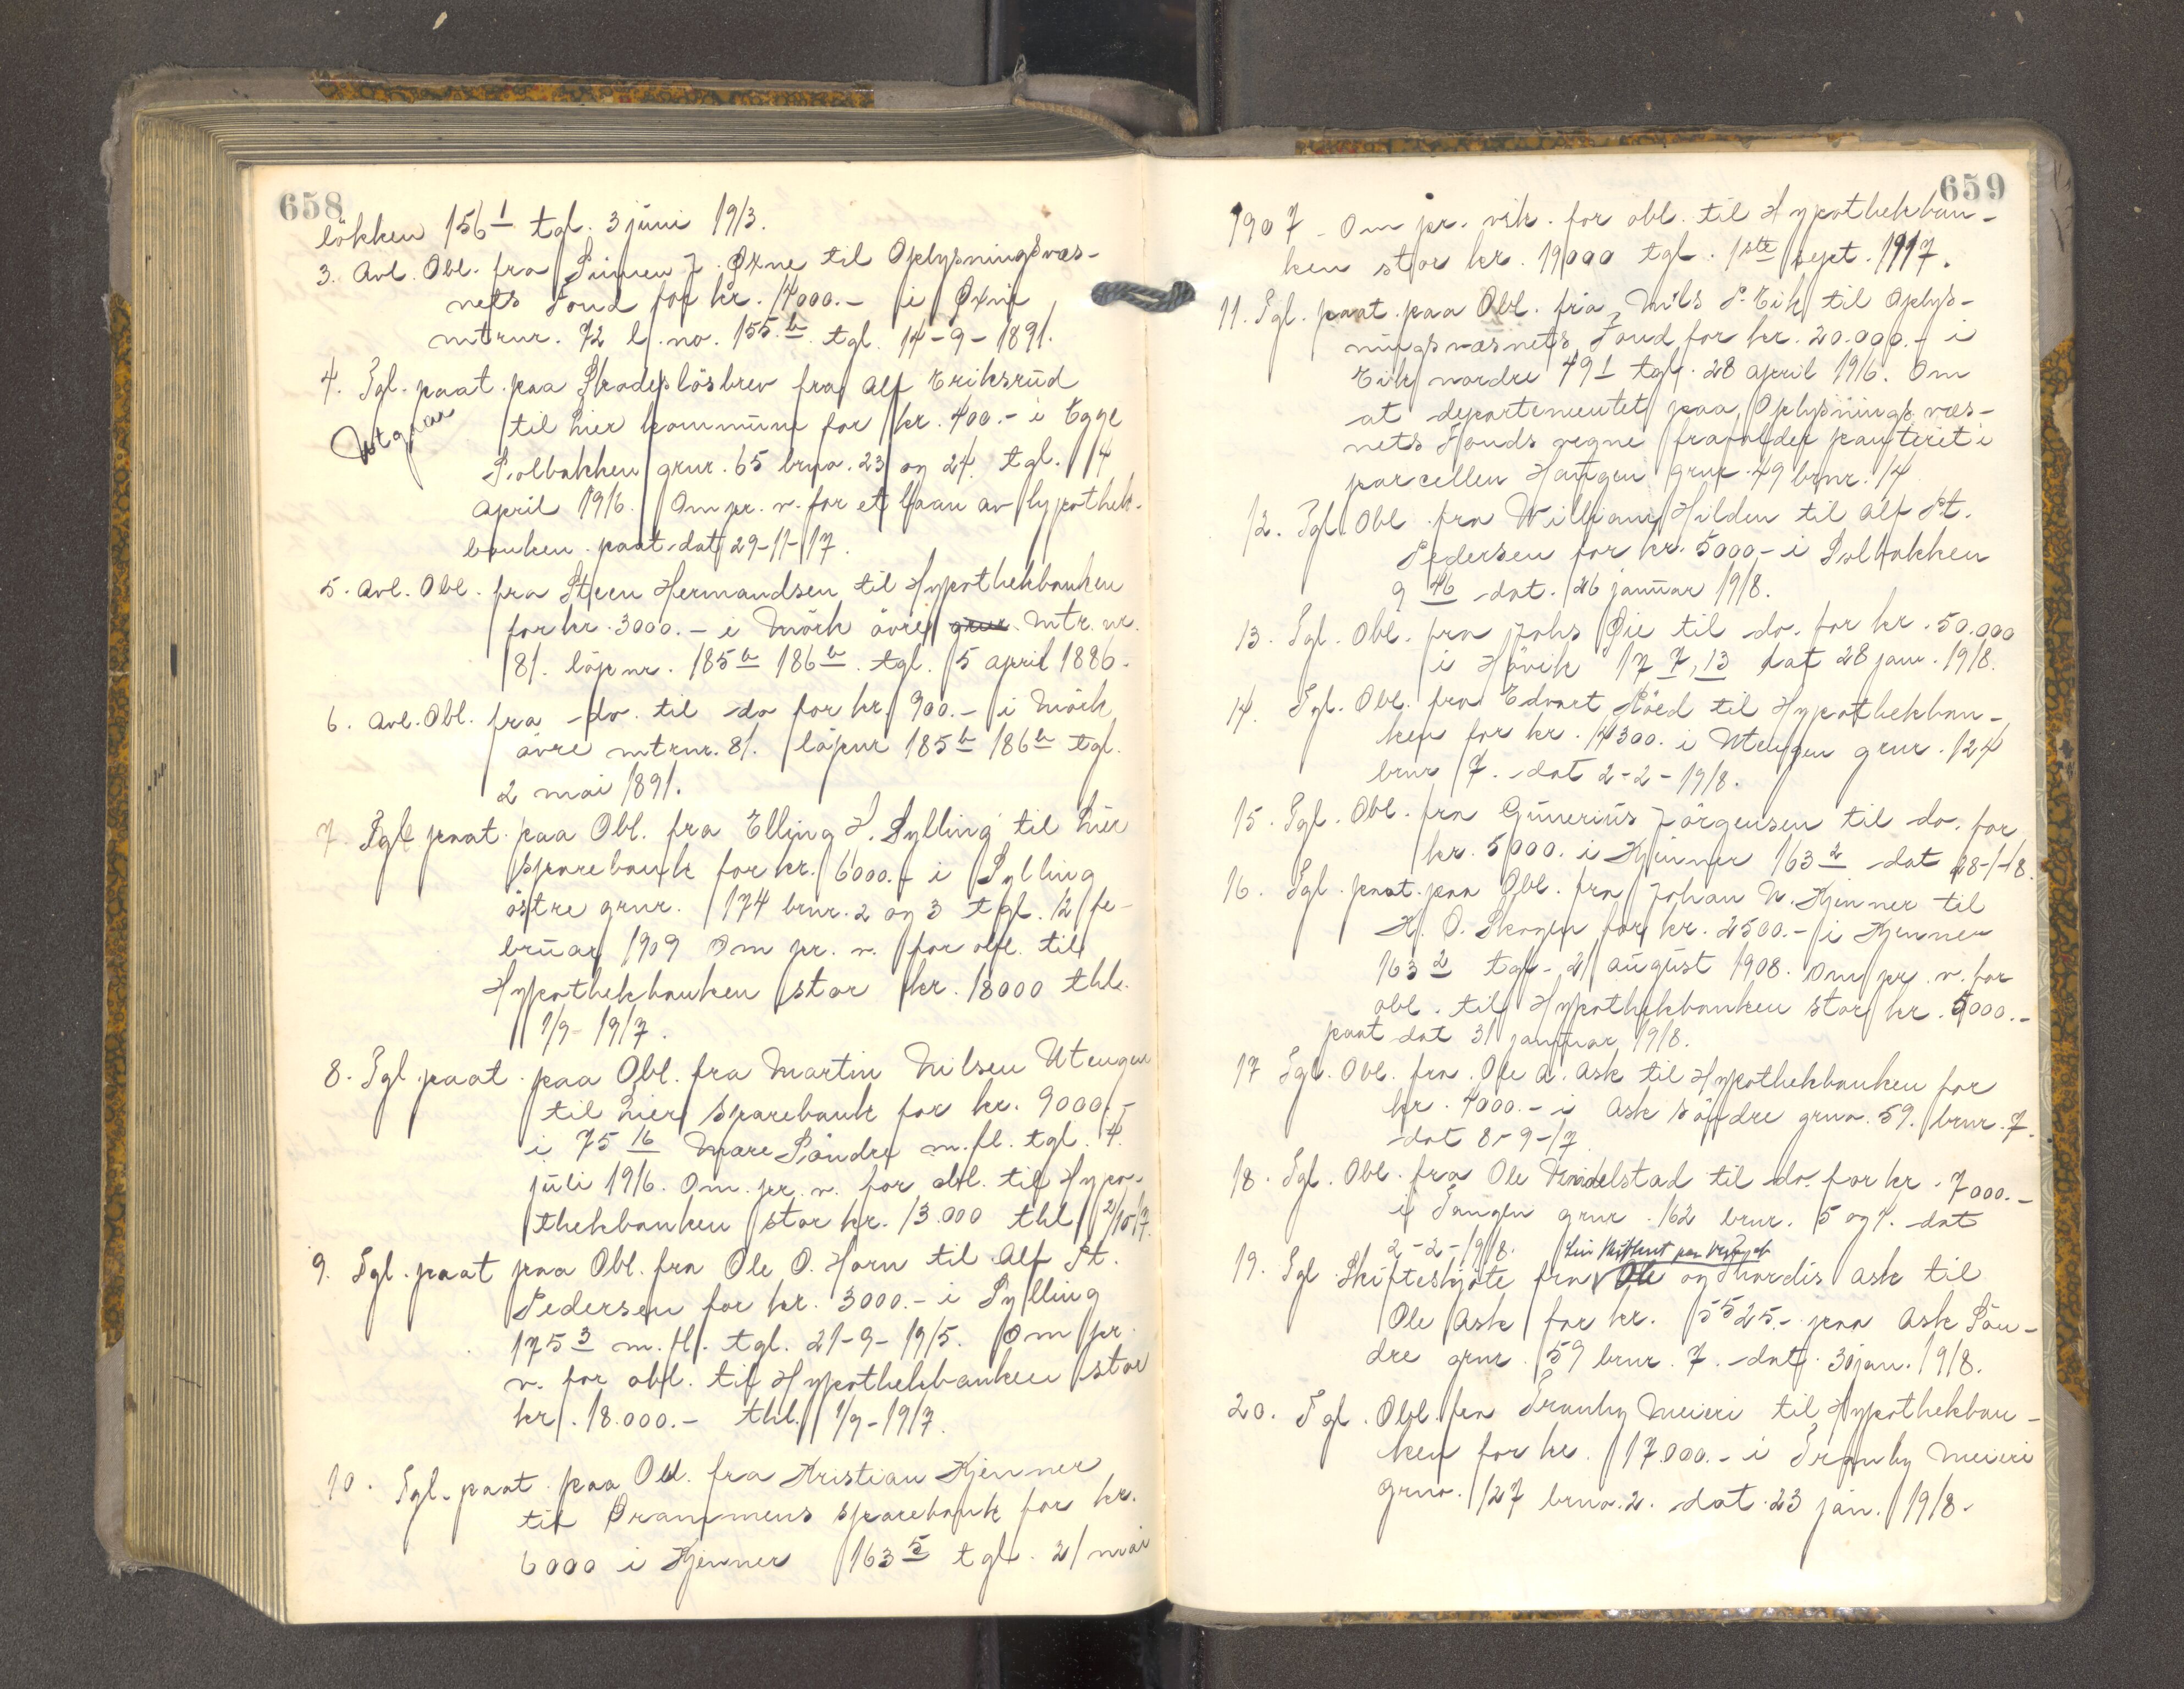 658
lökken 156 1 tgl. 3 juni 1913.
3. Avl. Obl. fra Simen J. Øxne til Oplysningsvæs-
nets Fond for kr. 4000.- i Øxne
mtrnr. 72 l. no. 155 b tgl. 14-9-1891.
4. Tgl. paat. paa Skadeslösbrev fra Alf Eriksrud
Utgaar
til Lier kommune for kr. 400.- i Egge
Solbakken grnr. 65 brno. 23 og 24 tgl. 14
april 1916. Om pr. v. for et laan av hypothek-
banken paat. dat 29-11-17.
5. Avl. Obl. fra Steen Hermandsen til Hypothekbanken
for kr. 3000.- i Mörk övre grnr. Mtr. nr.
81. löpnr. 185 b 186 b. tgl. 5 april 1886.
6. Avl. Obl. fra do. til do for kr. 900.- i Mörk
övre mtrnr. 81. löpnr 185 b 186 b tgl.
2 mai 1891.
7. Tgl paat. paa Obl. fra Elling H. Sylling til Lier
Sparebank for kr. 6000.- i Sylling
östre grnr. 174 brnr. 2 og 3 tgl. 12 fe-
bruar 1909 Om pr. v. for obl. til
Hypothekbanken stor kr. 18000 thl.
1/9-1917.
8. Tgl. paat. paa Obl. fra Martin Nilsen Utengen
til Lier Sparebank for kr. 9000.-
i 75 16 Møre Söndre m. fl. tgl. 4.
juli 1916. Om. pr. v. for obl. til Hypo-
thekbanken stor kr. 13.000 thl. 2/10 17.
9. Tgl. paat paa Obl. fra Ole O. Horn til Alf St.
Pedersen for kr. 3000.- i Sylling
175 3 m. fl. tgl. 21-9-1915. Om pr.
v. for obl. til Hypothekbanken stor
kr. 18.000.- thl. 1/9-1917.
10. Tgl. paat. paa Obl. fra Kristian Kjenner
til Drammens Sparebank for kr.
6000 i Kjenner 163 5 tgl. 21 mai
659
1907 - Om pr. vik. for obl. til Hypothekban-
ken stor kr. 19000 tgl. 1ste sept. 1917.
11. Tgl. paat. paa Obl. fra Nils P. Eik til Oplys-
ningsvæsnets Fond for kr. 20.000.- i
Eik nordre 49 1 tgl. 28 april 1916. Om
at departementet paa Oplysnings væs-
nets Fonds vegne frafalder panteret i
parcellen Haugen grnr. 49 brnr. 14
12. Tgl. Obl. fra William Hilden til Alf St.
Pedersen for kr. 5000.- i Solbakken
9 46 dat. 26 januar 1918.
13. Tgl. Obl. fra Johs Øie til do. for kr. 50.000
i Hövik 17 7, 13 dat 28 jan. 1918.
14. Tgl. Obl. fra Edvart Röed til Hypothekban-
ken for kr. 14300. i Utengen grnr. 124
brnr 7. dat 2-2-1918.
15. Tgl. Obl. fra Gunerius Jörgensen til do. for
kr. 5000. i Kjenner 163 2 dat 28-1-18.
16. Tgl. paat. paa Obl. fra Johan N. Kjenner til
K. O. Skogen for kr. 2500.- i Kjenner
163 2 tgl. 21 august 1908. Om pr. v. for
obl. til Hypothekbanken stor kr. 5000.-
paat dat 31 januar 1918.
17 Tgl. Obl. fra Ole A. Ask til Hypothekbanken for
kr. 4000.- i Ask Söndre grno. 59. brnr. 7.
dat 8-9-17
18. Tgl. Obl. fra Ole Vendelstad til do. for kr. 7000.-
i Tangen grnr. 162 brnr. 5 og 7. dat
2-2-1918.
19. Tgl. Skifteskjöte fra Ole og Thordis Ask til
Ole Ask for kr. 5525.- paa Ask Sön-
dre grnr. 59 brnr. 7. dat. 30 jan. 1918.
20. Tgl. Obl. fra Tranby Meieri til Hypothekban-
ken for kr. 17.000.- i Tranby Meieri
grno. 127 brno. 2. dat. 23 jan. 1918.